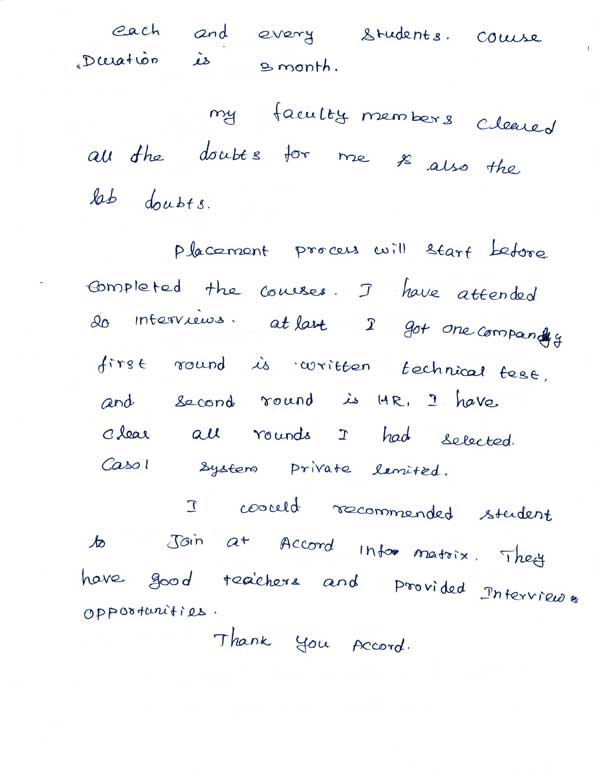 each and every students. course
Duration is 3 month.
my faculty members cleared
all the doubts for me & also the
lab doubts.
Placement process will start before
completed the courses. I have attended
20 interviews. at last I got one company
first round is written technical test.
and second round is HR. I have
clear all rounds I had selected.
Casol System private limited.
I coould recommended student
to Join at Accord Info matrix. They
have good teachers and provided Interview
opportunities.
Thank you Accord.